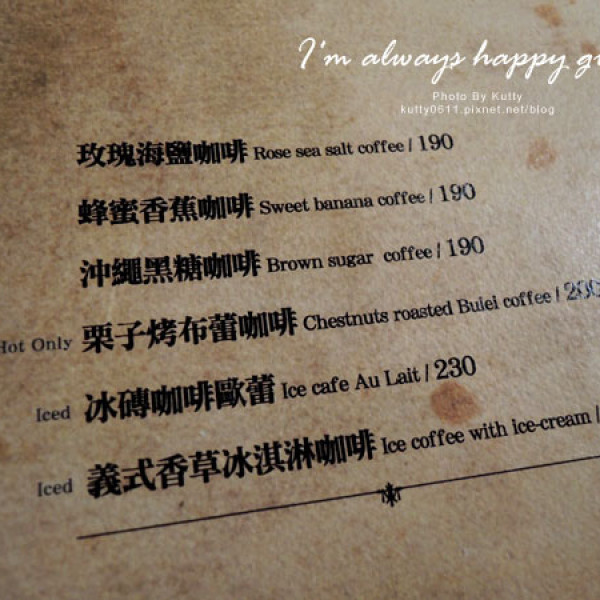 I'm always happy
Photo By Kutty
kutty0611.pixnet.net/blog
玫瑰海鹽咖啡 Rose sea salt coffee / 190
蜂蜜香蕉咖啡 Sweet banana coffee / 190
沖繩黑糖咖啡 Brown sugar coffee / 190
Hot Only 栗子烤布蕾咖啡 Chestnuts roasted Bulei coffee / 200
Iced 冰磚咖啡歐蕾 Ice cafe Au Lait / 230
Iced 義式香草冰淇淋咖啡 Ice coffee with ice-cream /